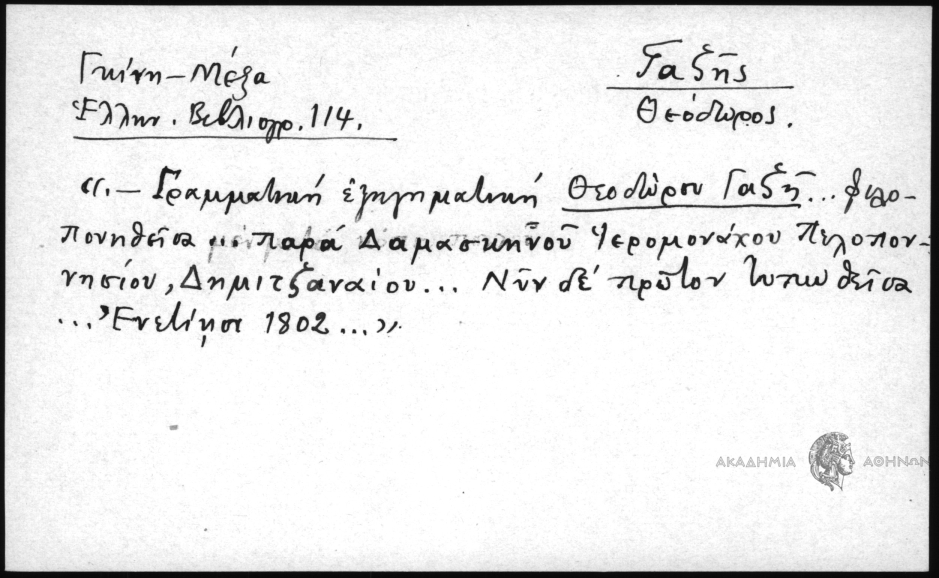 Γκίνη – Μέξα
Ἑλλην. Βιβλιογρ. 114.
Γαζῆς
Θεόδωρος.
«.– Γραμματική ἐξηγηματική Θεοδώρου Γαζῆ ... φιλο-
πονηθεῖσα παρά Δαμασκηνοῦ Ἱερομονάχου Πελοπον-
νησίου, Δημιτζαναίου ... Νῦν δέ πρῶτον τυπωθεῖσα
... Ἐνετίησι 1802 ...»
ΑΚΑΔΗΜΙΑ ΑΘΗΝΩΝ